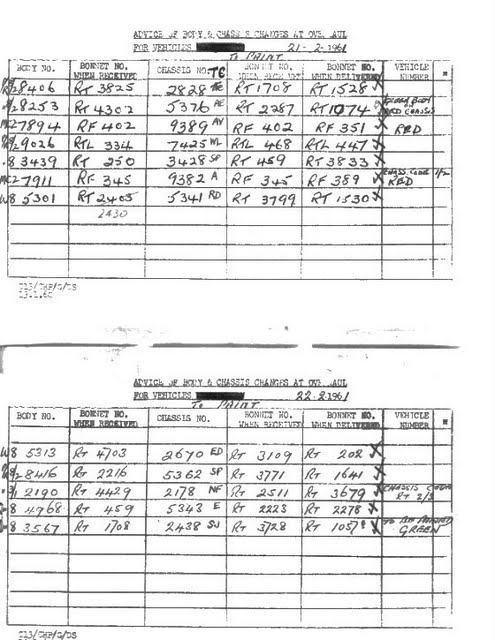 ADVICE OF BODY & CHASSIS CHANGES AT OVERHAUL
FOR VEHICLES 21-2-1961
To PAINT
BODY NO. BONNET NO. WHEN RECEIVED CHASSIS NO. BONNET NO. WHEN RECEIVED BONNET NO. WHEN DELIVERED VEHICLE NUMBER
8406 RT 3825 2828 RT 1708 RT 1528 X
8253 RT 4302 5376 RT 2287 RT 1074 X RED CHASSIS
7894 RF 402 9389 RF 402 RF 351 X RED
9026 RTL 334 7425 WL RTL 468 RTL 447 X
8 3439 RT 250 3428 SP RT 459 RT 3833 X
7911 RF 345 9382 A RF 345 RF 389 X CHASS. CODE 1/2 RED
W8 5301 RT 2405 5341 RD RT 3799 RT 1530 X
2430
ADVICE OF BODY & CHASSIS CHANGES AT OVERHAUL
FOR VEHICLES 22-2-1961
To PAINT
BODY NO. BONNET NO. WHEN RECEIVED CHASSIS NO. BONNET NO. WHEN RECEIVED BONNET NO. WHEN DELIVERED VEHICLE NUMBER
W8 5313 RT 4703 2670 ED RT 3109 RT 202 X
8416 RT 2216 5362 SP RT 3771 RT 1641 X
2190 RT 4429 2178 NF RT 2511 RT 3679 X CHASSIS CODE RT 2/3
8 4968 RT 459 5343 E RT 2223 RT 2278 X
8 3567 RT 1708 2438 SJ RT 3728 RT 1057 X GREEN